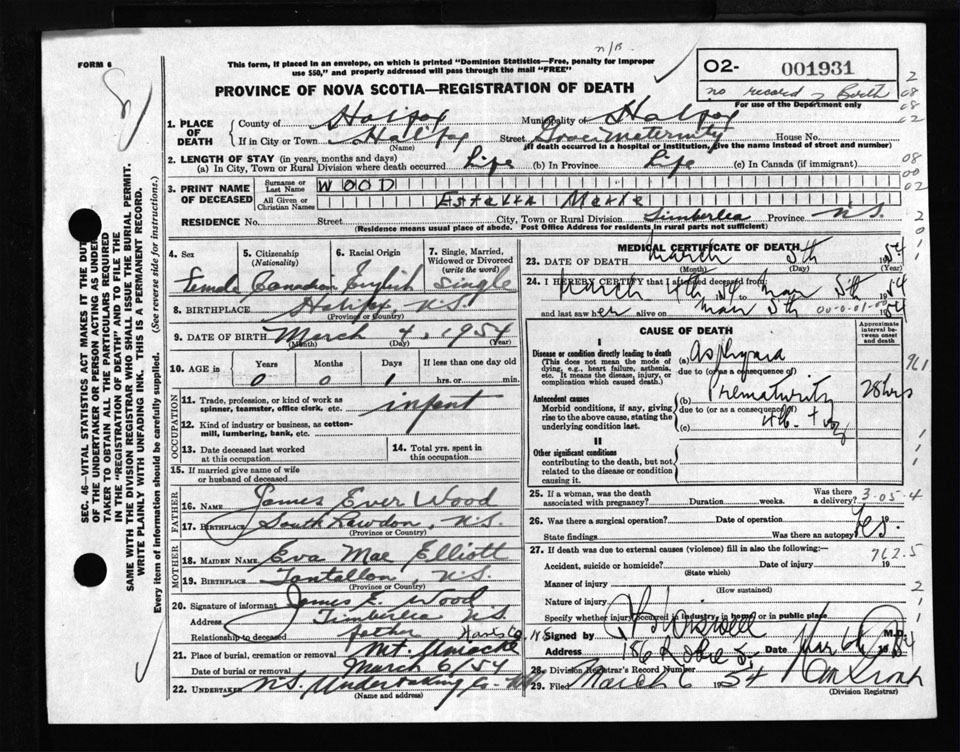 FORM 6
n/B
This form, if placed in an envelope, on which is printed "Dominion Statistics—Free, penalty for improper
use $50," and properly addressed will pass through the mail "FREE"
O2- 001931
no record Birth
For use of the Department only
PROVINCE OF NOVA SCOTIA—REGISTRATION OF DEATH
1. PLACE OF DEATH
County of Halifax Municipality of Halifax
If in City or Town Halifax Street Grace Maternity House No.
(Name) (If death occurred in a hospital or institution, give the name instead of street and number)
2. LENGTH OF STAY (in years, months and days)
(a) In City, Town or Rural Division where death occurred Life (b) In Province Life (c) In Canada (if immigrant)
3. PRINT NAME OF DECEASED
Surname or Last Name WOOD
All Given or Christian Names Estella Merle
RESIDENCE No. Street City, Town or Rural Division Timberlea Province N.S.
(Residence means usual place of abode. Post Office Address for residents in rural parts not sufficient)
4. Sex 5. Citizenship (Nationality) 6. Racial Origin 7. Single, Married, Widowed or Divorced (write the word)
Female Canadian English Single
8. BIRTHPLACE Halifax, N.S.
(Province or Country)
9. DATE OF BIRTH March 4, 1954
(Month) (Day) (Year)
10. AGE in Years Months Days If less than one day old
0 0 1 hrs. or min.
OCCUPATION
11. Trade, profession, or kind of work as spinner, teamster, office clerk, etc. infant
12. Kind of industry or business, as cotton-mill, lumbering, bank, etc.
13. Date deceased last worked at this occupation
14. Total yrs. spent in this occupation
15. If married give name of wife or husband of deceased
FATHER
16. NAME James Ever Wood
17. BIRTHPLACE South Rawdon, N.S.
(Province or Country)
MOTHER
18. MAIDEN NAME Eva Mae Elliott
19. BIRTHPLACE Tantallon, N.S.
(Province or Country)
20. Signature of informant James E. Wood
Address Timberlea N.S.
Relationship to deceased father
21. Place of burial, cremation or removal Mt. Uniacke Hants Co. N.S.
Date of burial or removal March 6/54
22. UNDERTAKER N.S. Undertaking Co.
(Name and address)
MEDICAL CERTIFICATE OF DEATH
23. DATE OF DEATH March 5th 1954
(Month) (Day) (Year)
24. I HEREBY CERTIFY that I attended deceased from
March 4th 1954 to Mar 5th 1954
and last saw her alive on Mar 5th 1954
CAUSE OF DEATH
Approximate interval between onset and death
I
Disease or condition directly leading to death
(This does not mean the mode of dying, e.g., heart failure, asthenia, etc. It means the disease, injury, or complication which caused death.)
(a) Asphyxia
due to (or as a consequence of)
Antecedent causes
Morbid conditions, if any, giving rise to the above cause, stating the underlying condition last.
(b) Prematurity 28 hrs
due to (or as a consequence of)
(c)
II
Other significant conditions
contributing to the death, but not related to the disease or condition causing it.
25. If a woman, was the death associated with pregnancy? Duration weeks. Was there a delivery?
3-05-4
26. Was there a surgical operation? Date of operation
State findings Was there an autopsy? Yes.
27. If death was due to external causes (violence) fill in also the following:—
762.5
Accident, suicide or homicide? Date of injury 19
(State which)
Manner of injury
(How sustained)
Nature of injury
Specify whether injury occurred in industry, in home or in public place
Signed by M.D.
Address 186 Robie St. Date Mar 6th 1954
28. Division Registrar's Record Number
29. Filed March 6 1954
(Division Registrar)
SEC. 46—VITAL STATISTICS ACT MAKES IT THE DUTY
OF THE UNDERTAKER OR PERSON ACTING AS UNDER-
TAKER TO OBTAIN ALL THE PARTICULARS REQUIRED
IN THE "REGISTRATION OF DEATH" AND TO FILE THE
SAME WITH THE DIVISION REGISTRAR WHO SHALL ISSUE THE BURIAL PERMIT.
WRITE PLAINLY WITH UNFADING INK. THIS IS A PERMANENT RECORD.
Every item of information should be carefully supplied. (See reverse side for instructions.)